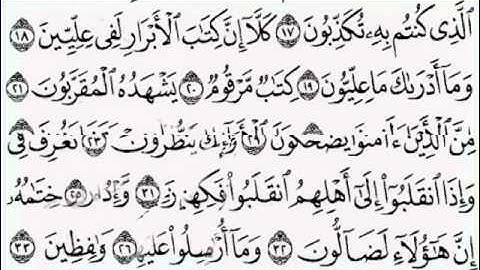 ٱلَّذِى كُنتُم بِهِۦ تُكَذِّبُونَ ١٧ كَلَّآ إِنَّ كِتَٰبَ ٱلْأَبْرَارِ لَفِى عِلِّيِّينَ ١٨
وَمَآ أَدْرَىٰكَ مَا عِلِّيُّونَ ١٩ كِتَٰبٌ مَّرْقُومٌ ٢٠ يَشْهَدُهُ ٱلْمُقَرَّبُونَ ٢١
مِنَ ٱلَّذِينَ ءَامَنُوا۟ يَضْحَكُونَ ٢٩ يَنظُرُونَ ٢٣ تَعْرِفُ فِى
وَإِذَا ٱنقَلَبُوٓا۟ إِلَىٰٓ أَهْلِهِمُ ٱنقَلَبُوا۟ ٣١ ٢٥ خِتَٰمُهُۥ
إِنَّ هَٰٓؤُلَآءِ لَضَآلُّونَ ٣٢ وَمَآ أُرْسِلُوا۟ ٢٦ ٣٣